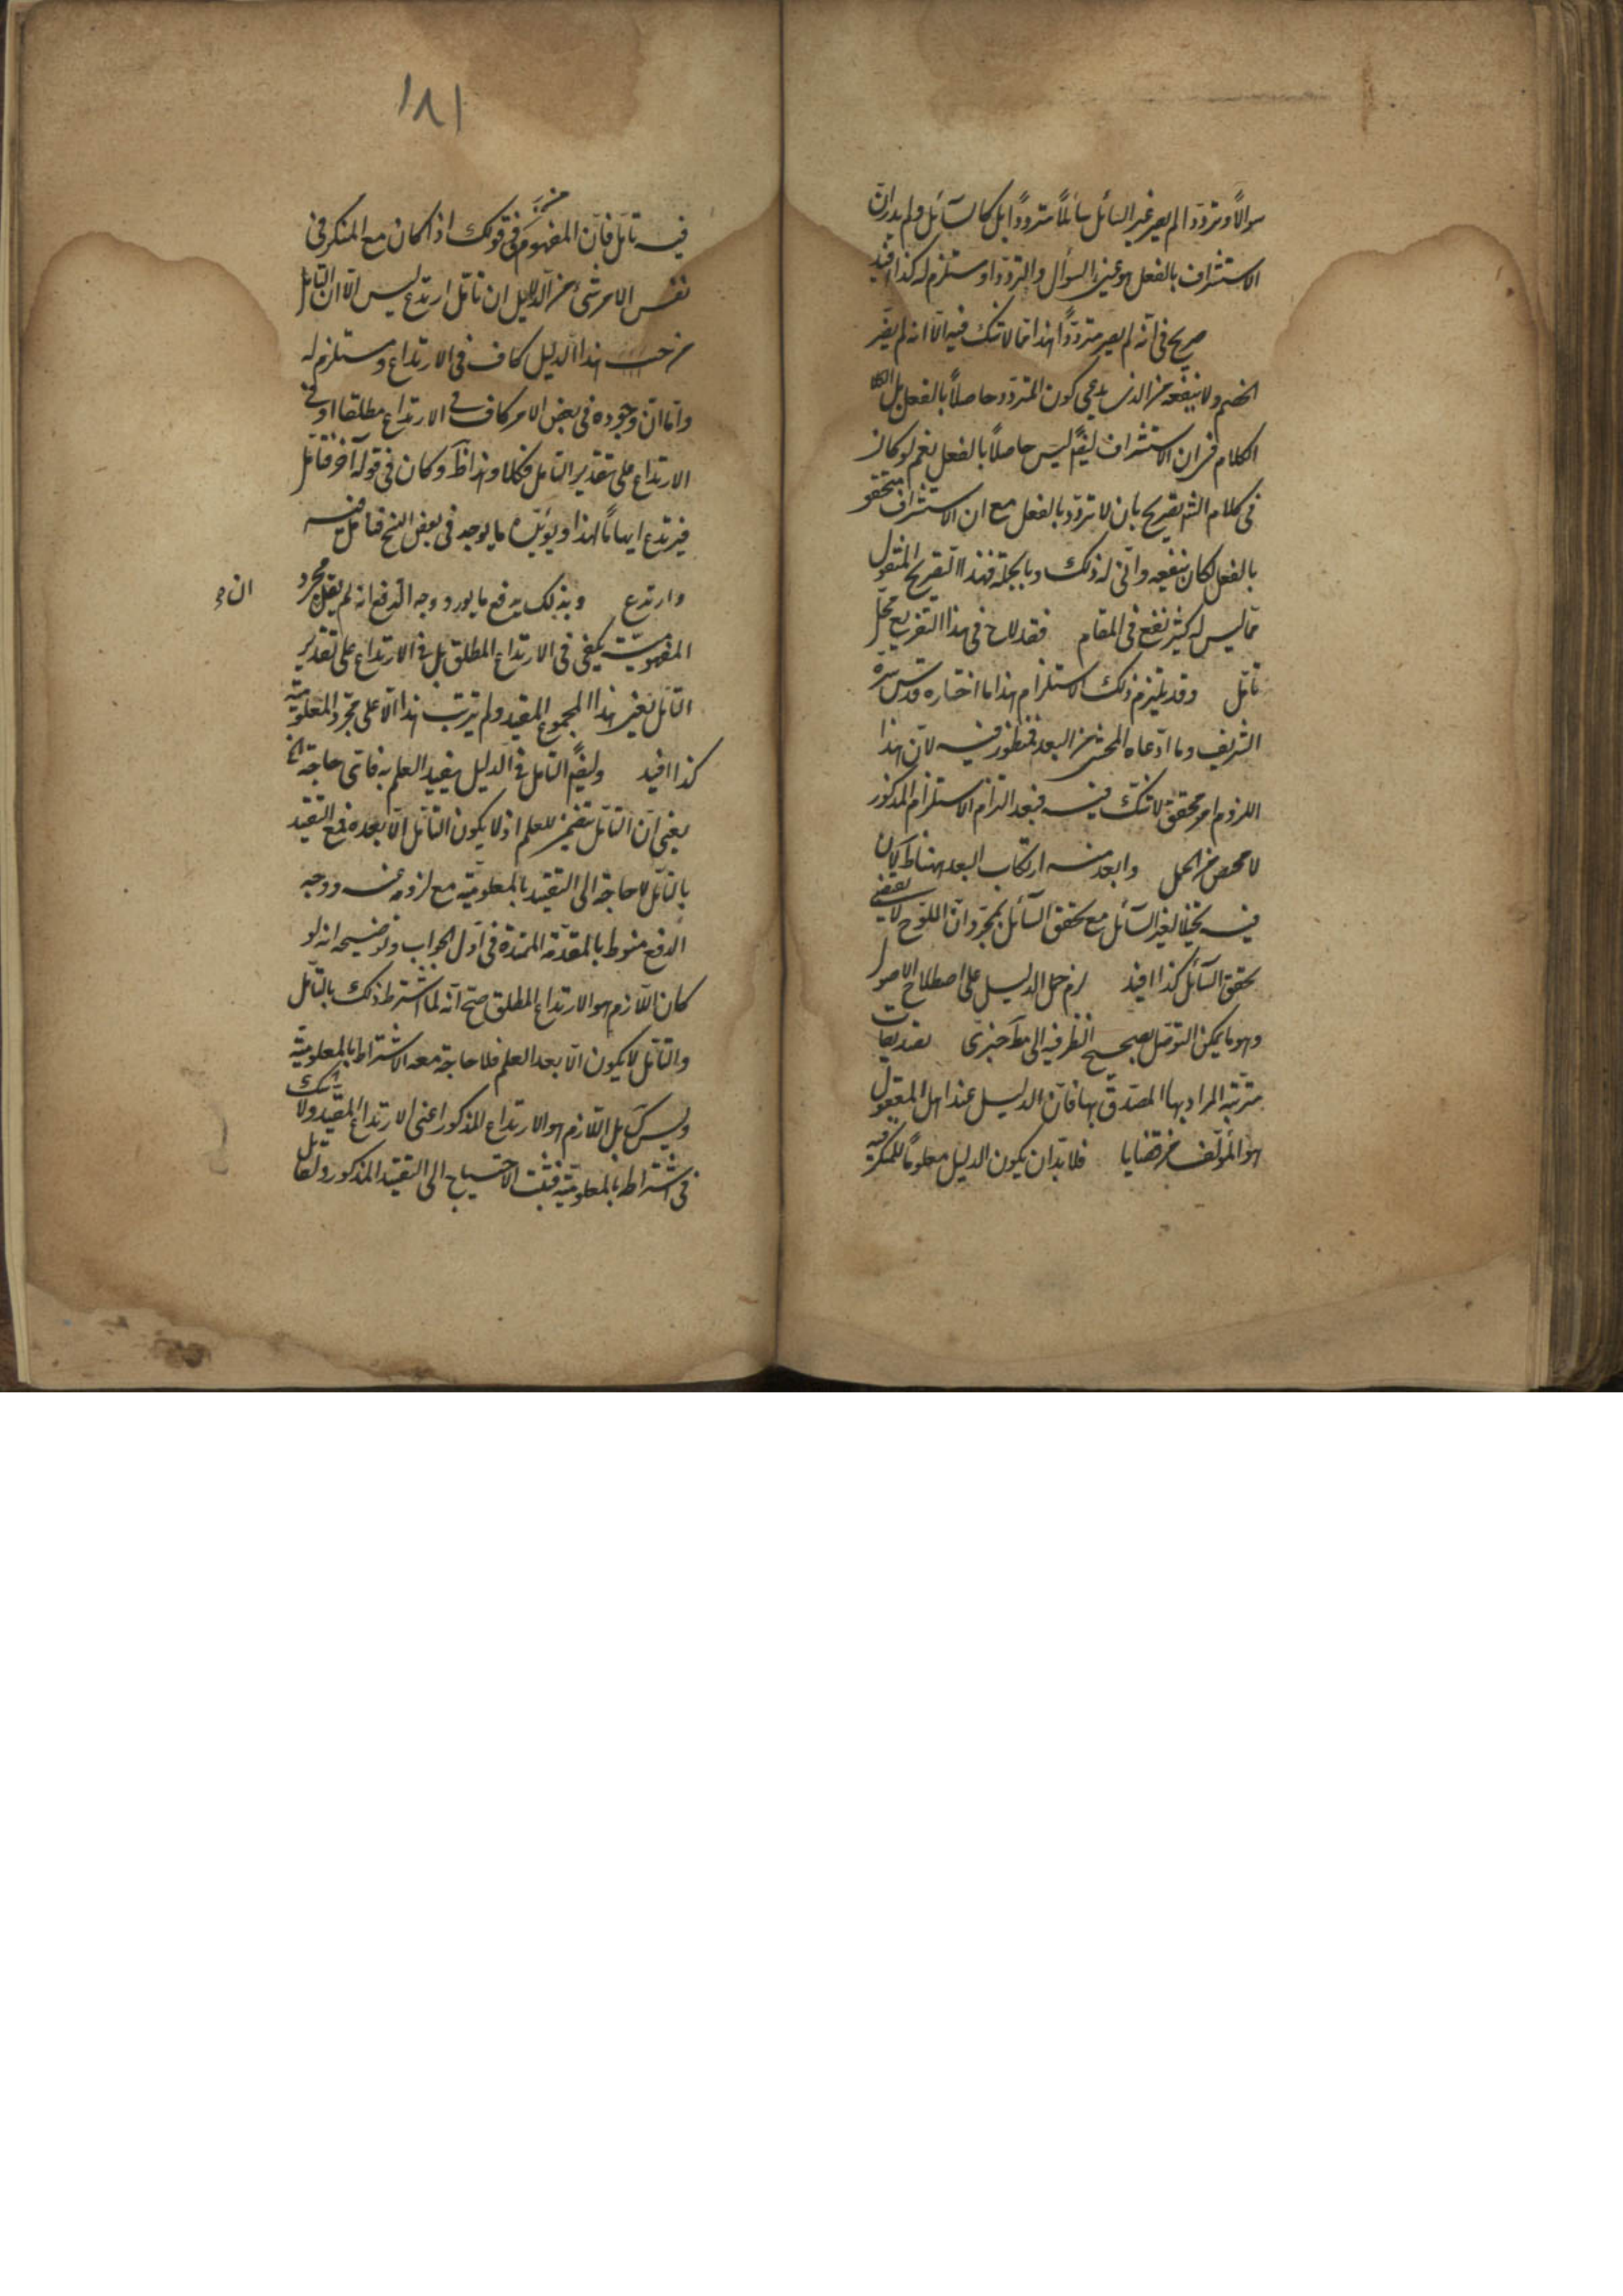 سوالاً وترددا لم يصر غير السائل سائلاً مترددا بل كالسائل ولم يدر ان
الاستشراف بالفعل هو عين السؤال والتردد او مستلزم له كذا افيد
صريح في انه لم يصر مترددا هذا مما لا شك فيه الا انه لم يضر
الخصم ولا ينفعه من الذى يدعي كون التردد حاصلاً بالفعل بل الكلا
الكلام فى ان الاستشراف ليس حاصلاً بالفعل نعم لو كان
في كلام الش تصريح بان لا تردد بالفعل مع ان الاستشراف متحقق
بالفعل لكان ينفعه وانى له ذلك وبالجملة فهذا التصريح المنقول
مما ليس له كثير نفع فى المقام فقد لاح فى هذا التفريع محل
تأمل وقد يلتزم ذلك الاستلزام هذا ما اختاره قدس سره
الشريف وما ادعاه المحشى من البعد فمنظور فيه لان هذا
اللزوم امر محقق لا شك فيه فبعد التزام الاستلزام المذكور
لا محيص من الحمل وابعد منه ارتكاب البعد هنا ظ لان
فيه تخييلا لغير السائل مع تحقق السائل بمجرد ان اللوح لا يقتضي
تحقق السائل كذا افيد لزم حمل الدليل على اصطلاح الاصول
وهو ما يمكن التوصل بصحيح النظر فيه الى مط خبرى تصديقات
مترتبة المراد بها المصدق بها فان الدليل عند اهل المعقول
هو المؤلف من قضايا فلا بد ان يكون الدليل معلوماً للمنكر فيه
١٨١
فيه تأمل فان المفهوم من قولك اذا كان مع المنكر فى
نفس الامر شئ من الدلايل ان تأمل ارتدع ليس الا ان التأمل
من حيث هذا الدليل كاف فى الارتداع ومستلزم له
واما ان وجوده فى بعض الامر كاف فى الارتداع مطلقا او فى
الارتداع على تقدير التأمل فكلا وهذا ظ وكان فى قوله آخر فتأمل
فيرتدع ايماءً لهذا ويؤيده ما يوجد فى بعض النسخ فتأمل فيه
وارتدع وبذلك يدفع ما يورد ووجه الدفع انه لم يقل مجرد
ان
المفهومية يكفى فى الارتداع المطلق بل فى الارتداع على تقدير
التأمل يعنى هذا المجموع المقيد ولم يترتب هذا الا على مجرد المعلومية
كذا افيد وليقم التأمل فى الدليل يفيد العلم به فاى حاجة الخ
يعنى ان التأمل متضمن للعلم اذ لا يكون التأمل الا بعده فمع التقييد
بالتأمل لا حاجة الى التقييد بالمعلومية مع لزومه عنه ووجه
الدفع منوط بالمقدمة الممهدة فى اول الجواب وتوضيحه انه لو
كان اللازم هو الارتداع المطلق صح انه لما اشترط ذلك بالتأمل
والتأمل لا يكون الا بعد العلم فلا حاجة معه الاشتراط بالمعلومية
وليس كك بل اللازم هو الارتداع المذكور اعنى الارتداع المقيد ولا شك
فى اشتراط بالمعلومية فثبت الاحتياج الى التقييد المذكور ولقائل